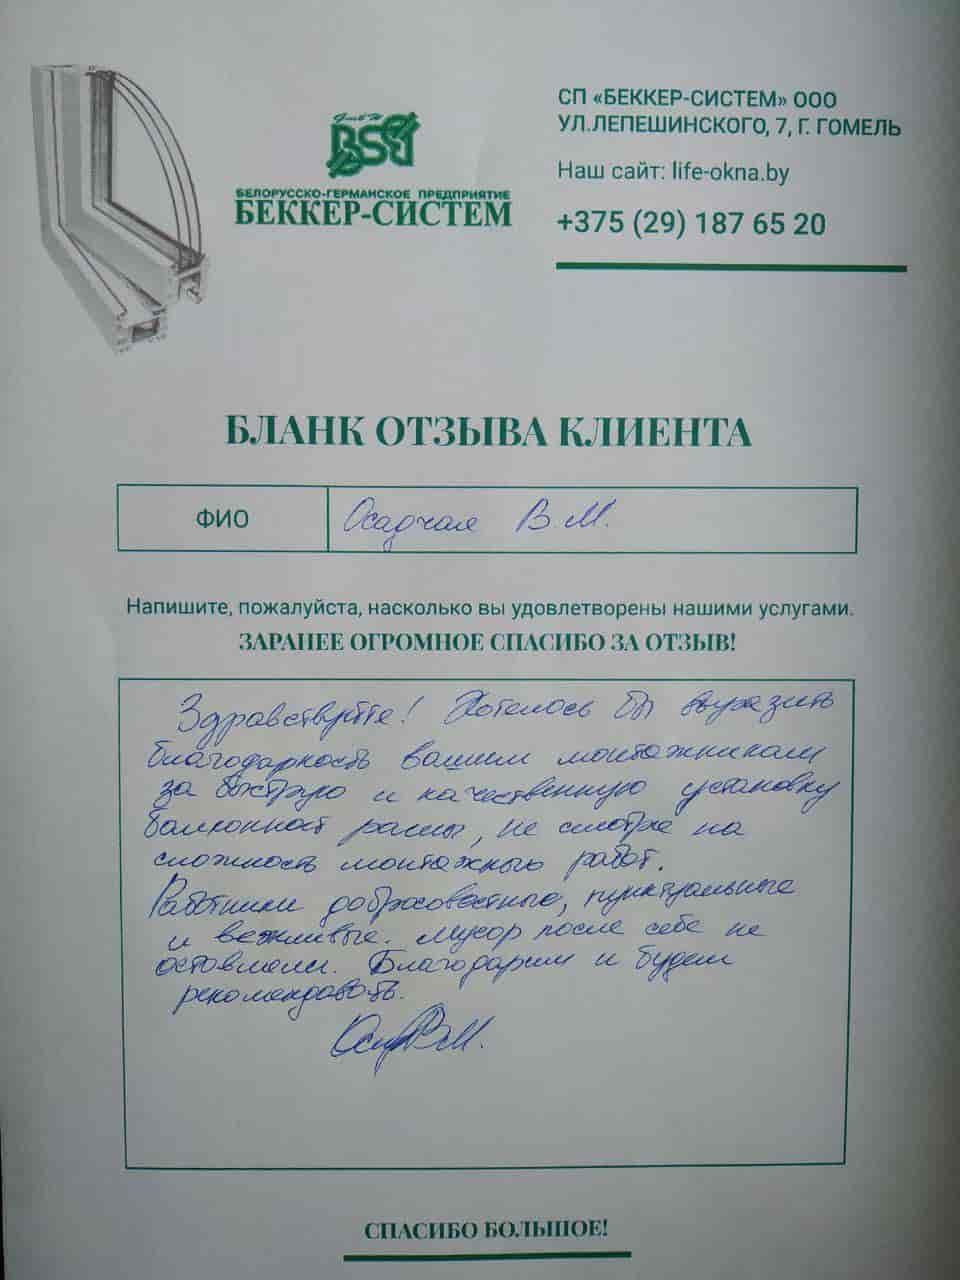 СП «БЕККЕР-СИСТЕМ» ООО
УЛ.ЛЕПЕШИНСКОГО, 7, Г. ГОМЕЛЬ
Наш сайт: life-okna.by
+375 (29) 187 65 20
GmbH
BSG
БЕЛОРУССКО-ГЕРМАНСКОЕ ПРЕДПРИЯТИЕ
БЕККЕР-СИСТЕМ
БЛАНК ОТЗЫВА КЛИЕНТА
ФИО
Осадчая В М.
Напишите, пожалуйста, насколько вы удовлетворены нашими услугами.
ЗАРАНЕЕ ОГРОМНОЕ СПАСИБО ЗА ОТЗЫВ!
Здравствуйте! Хотелось бы выразить
благодарность вашим монтажникам
за быструю и качественную установку
балконной рамы, не смотря на
сложность монтажных работ.
Работники добросовестные, пунктуальные
и вежливые. Мусор после себя не
оставляли. Благодарим и будем
рекомендовать.
СПАСИБО БОЛЬШОЕ!